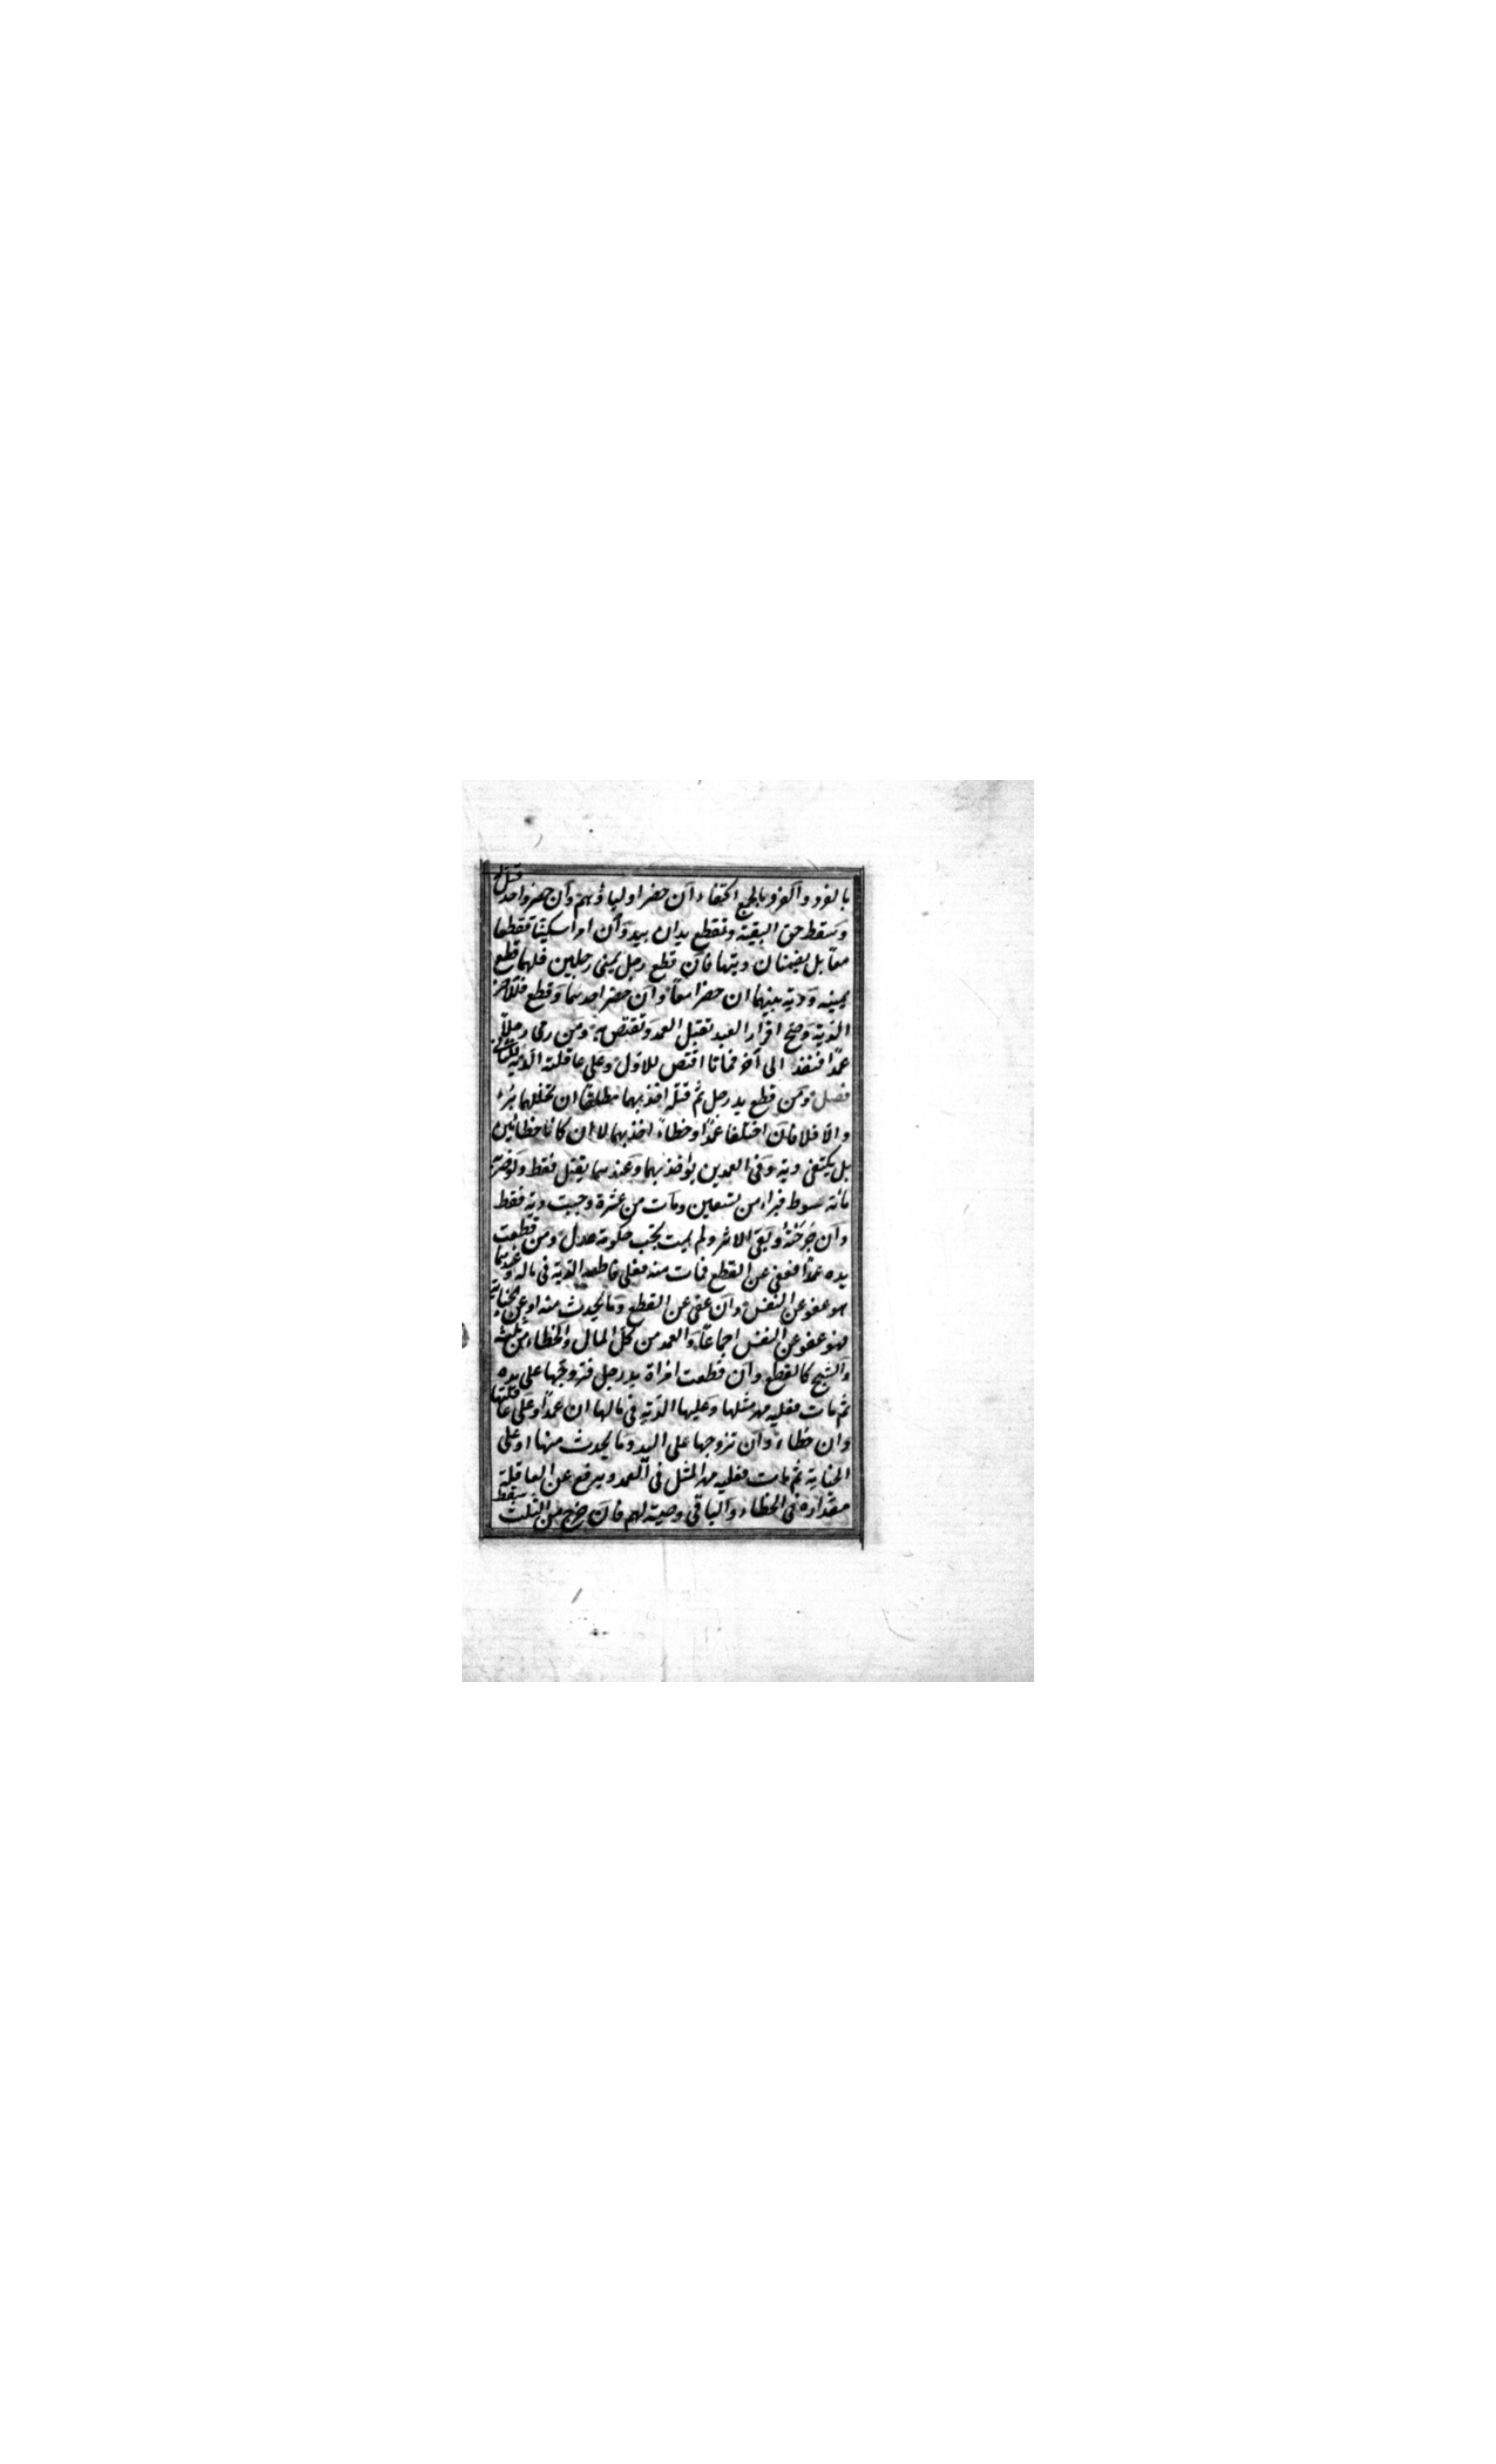 بالفرد والفرد بالجمع اكتفاء ان حضر اولياؤهم وان حضر واحد قتل له
وسقط حق البقية ولا تقطع يدان بيد وان امرا سكينا فقطعا
معا بل يضمنان ديتها فان قطع رجل يميني رجلين فلهما قطع
يمينه ودية بينهما ان حضرا معا وان حضر احدهما وقطع فللآخر
الدية وصح اقرار العبد بقتل العمد وتقتص به ومن رمى رجلا
عمدا فنفذ الى آخر فماتا اقتص للاول وعلى عاقلته الدية للثاني
فصل ومن قطع يد رجل ثم قتله اخذ بهما مطلقا ان تخللهما برء
والا فلا فان اختلفا عمدا وخطاء اخذ بهما لا ان كانا خطائين
بل يكتفى دية وفي العمدين يؤخذ بهما وعندهما يقتل فقط ولو ضربه
مائة سوط فبراء من تسعين ومات من عشرة وجبت دية فقط
وان جرحته وبقي الاثر ولم يمت تجب حكومة عدل ومن قطعت
يده عمدا فعفى عن القطع فمات منه فعلى قاطعه الدية في ماله وعندهما
هو عفو عن النفس وان عفى عن القطع وما يحدث منه او عن الجناية
فهو عفو عن النفس اجماعا والعمد من كل المال والخطاء من ثلثه
والشج كالقطع وان قطعت امراة يد رجل فتزوجها على يده
ثم مات فعليه مهر مثلها وعليها الدية في مالها ان عمدا وعلى عاقلتها
وان خطاء وان تزوجها على اليد وما يحدث منها او على
الجناية ثم مات فعليه مهر المثل في العمد ويرفع عن العاقلة
مقداره في الخطاء والباقي وصية لهم فان خرج من الثلث سقط